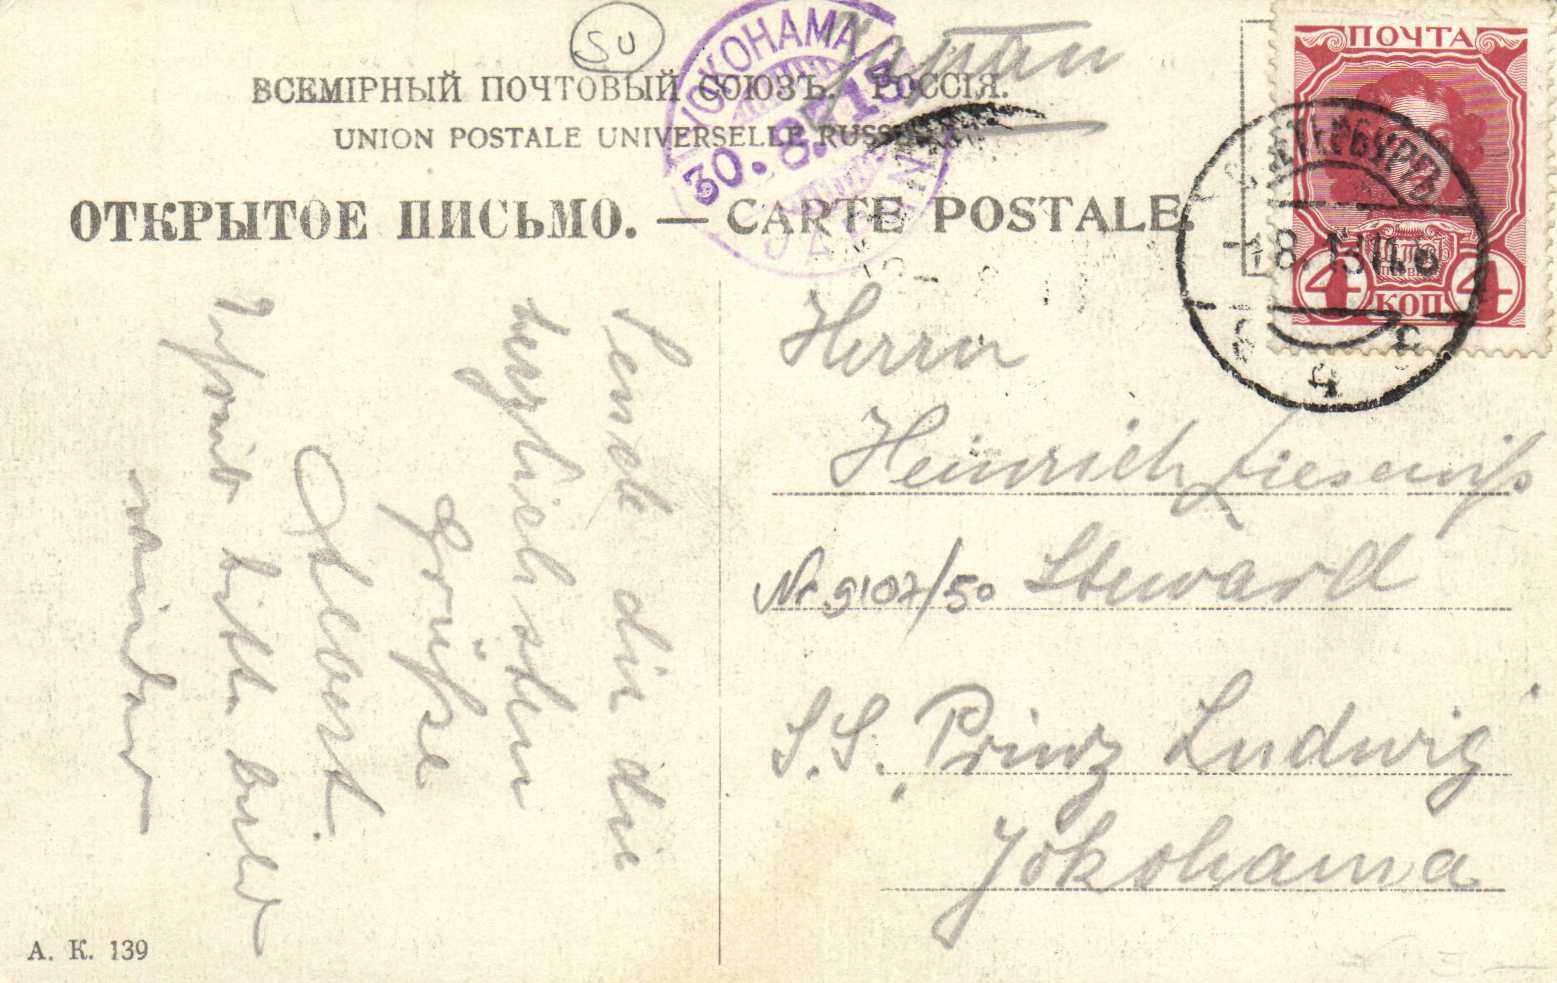 SU
Japan
ВСЕМІРНЫЙ ПОЧТОВЫЙ СОЮЗЪ. РОССІЯ.
UNION POSTALE UNIVERSELLE RUSSIE.
ОТКРЫТОЕ ПИСЬМО. — CARTE POSTALE.
YOKOHAMA
30.8.13
JAPAN
ПОЧТА
4 КОП 4
С ПЕТЕРБУРГЪ
-18.13
Herrn
Heinrich
Nr 9107/50 Steward
S.S. Prinz Ludwig
Yokohama
Sende dir die
herzlichsten
Grüße
Albert.
bitte bald
wieder
А. К. 139